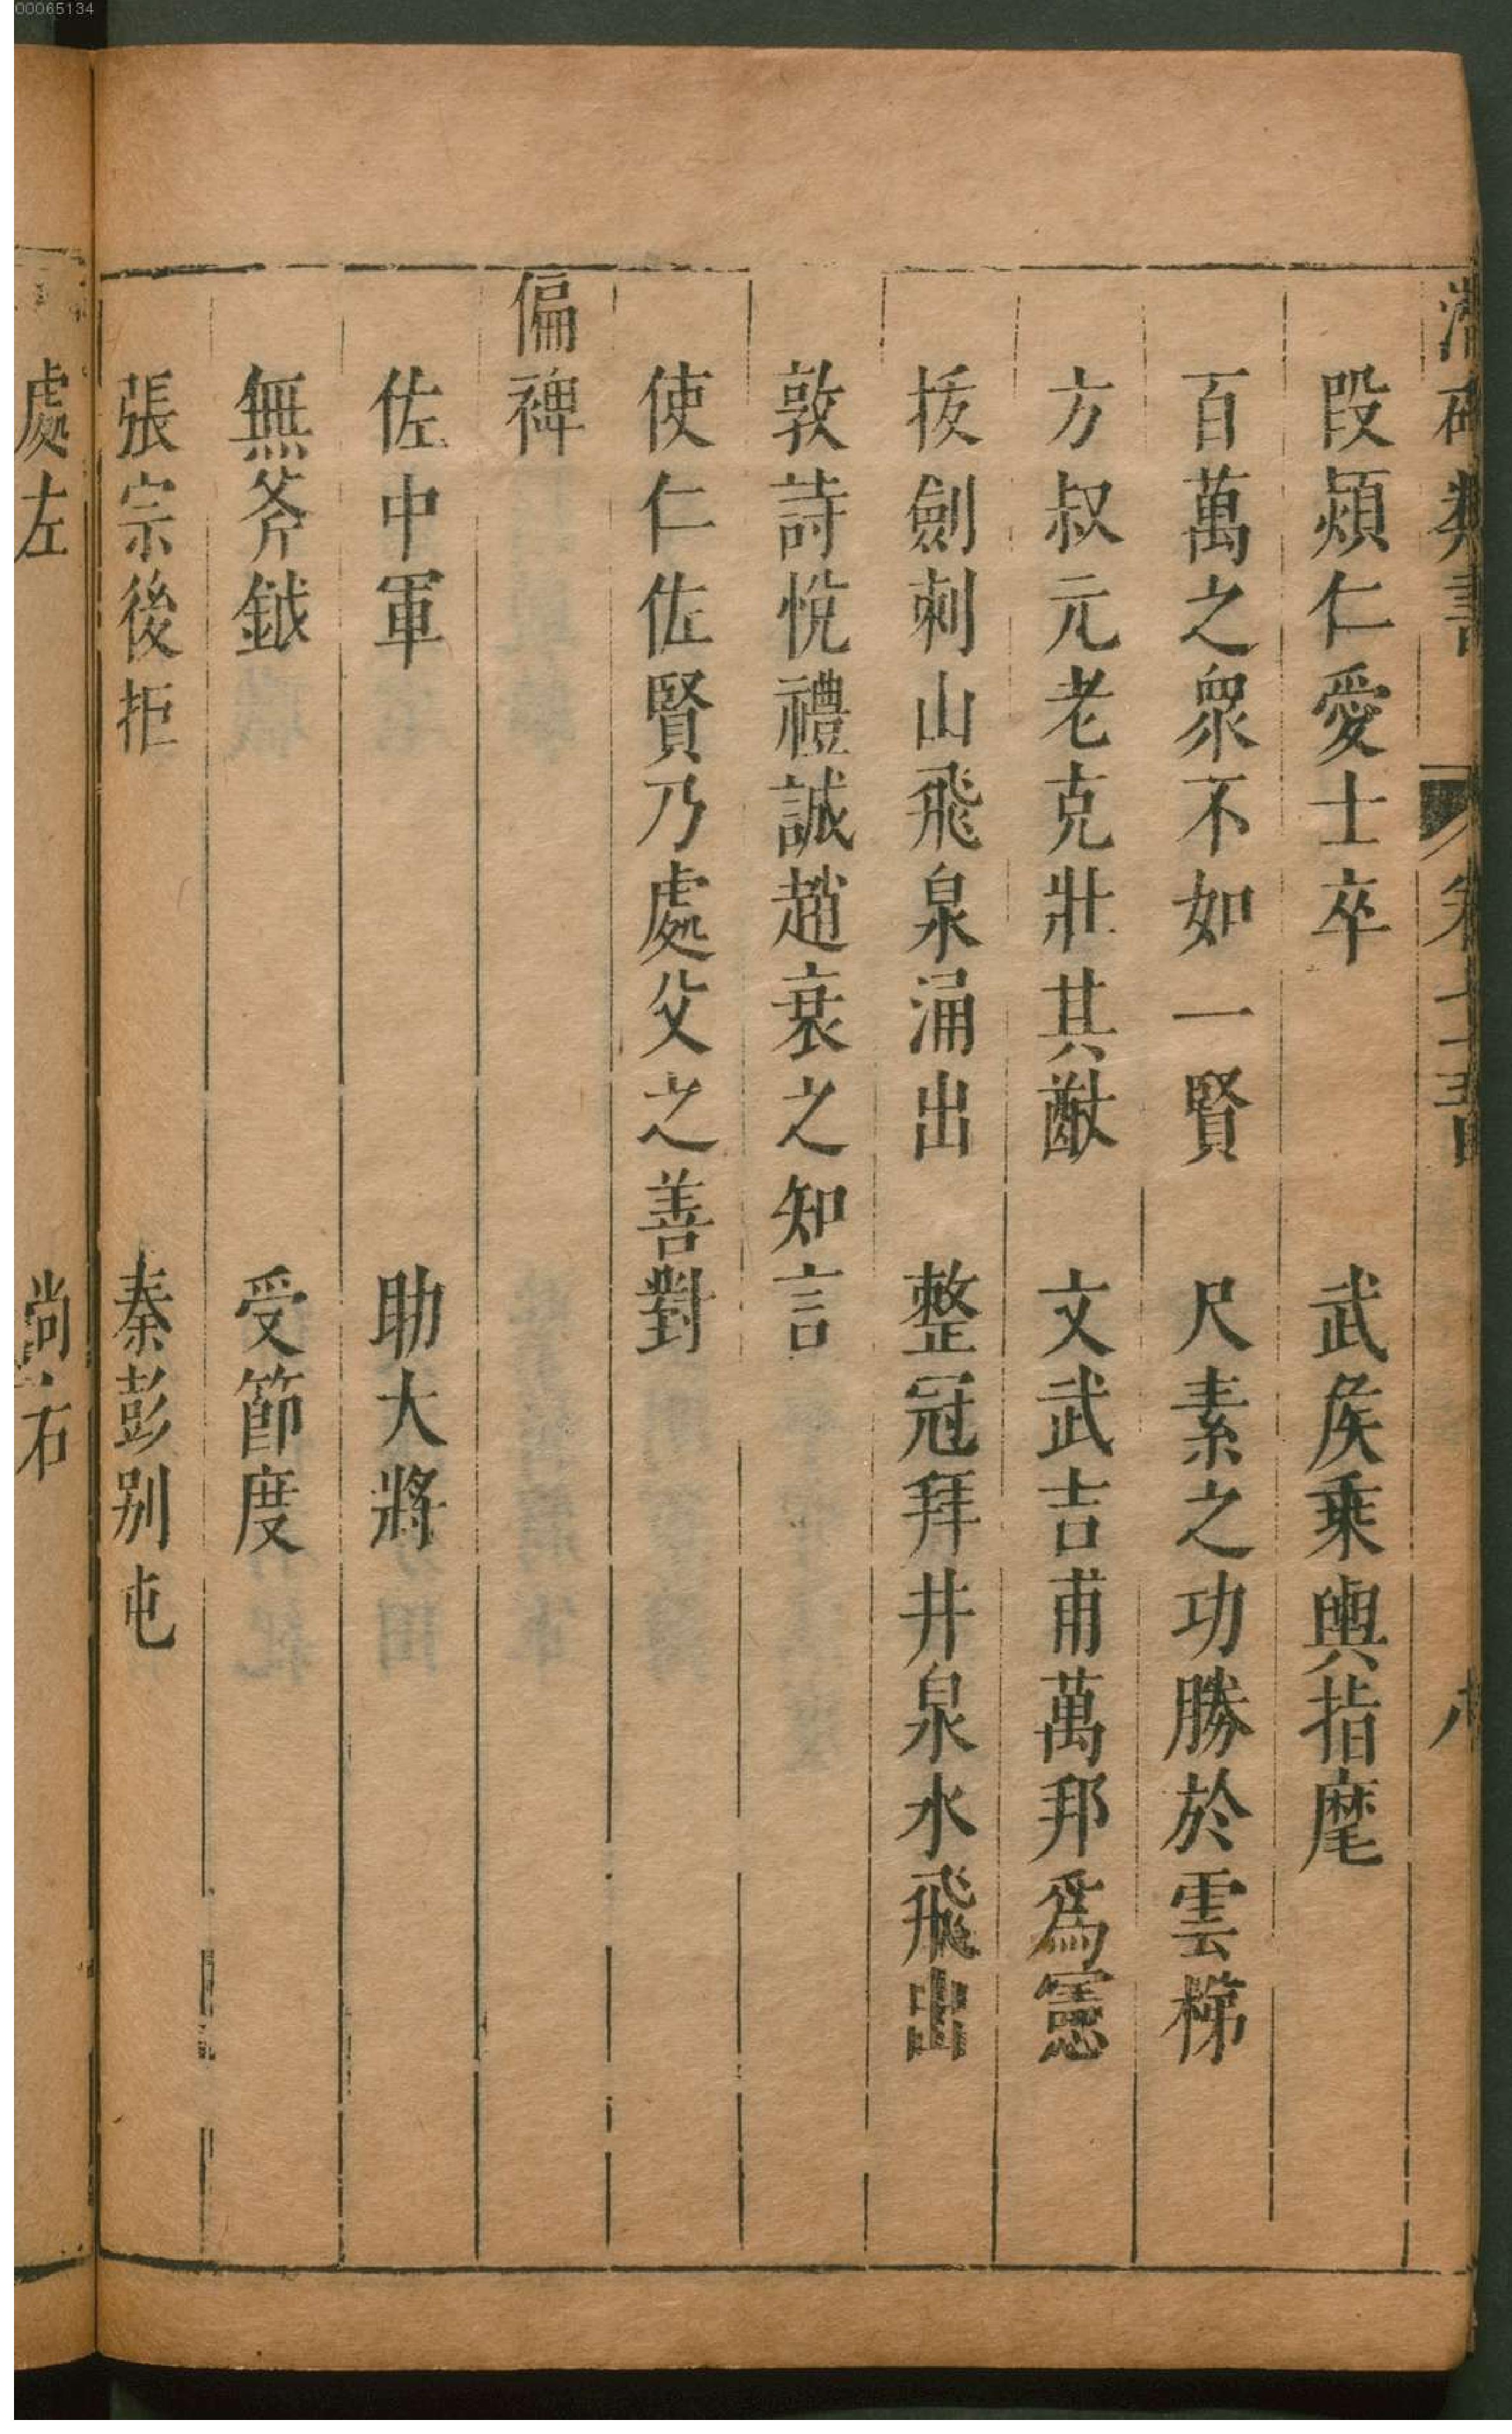 00065134
類書
段熲仁愛士卒 武矦乗輿指麾
百萬之衆不如一賢 尺素之功勝於雲梯
方叔元老克壯其猷 文武吉甫萬邦爲憲
拔劍刺山飛泉涌出 整冠拜井泉水飛出
敦詩悅禮誠趙衰之知言
使仁佐賢乃處父之善對
偏裨
佐中軍 助大將
無斧鉞 受節度
張宗後拒 秦彭别屯
處左 尚右